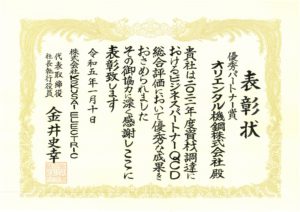 表彰状
優秀パートナー賞
オリエンタル機鋼株式会社 殿
貴社は二〇二二年度資材調達に
おけるビジネスパートナーQCD
総合評価において優秀な成果を
おさめられました
その御協力に深く感謝しここに
表彰致します
令和五年一月十日
株式会社KYOSAI ELECTRIC
代表取締役
社長執行役員
金井史幸